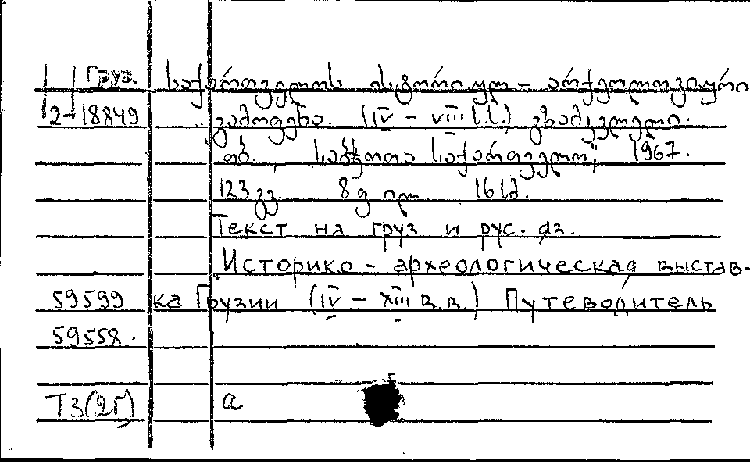 Груз. საქართველოს ისტორიულ - არქეოლოგიური
2-18849 გამოფენა. (IV - VIII ს.ს.) გზამკვლევი.
თბ., "საბჭოთა საქართველო", 1967.
123 გვ. 8 ფ. ილ. 16 სმ.
Текст на груз и рус. яз.
Историко - археологическая выстав-
59599 ка Грузии (IV - XIII в.в.) Путеводитель
59558.
Т3(2Г) а